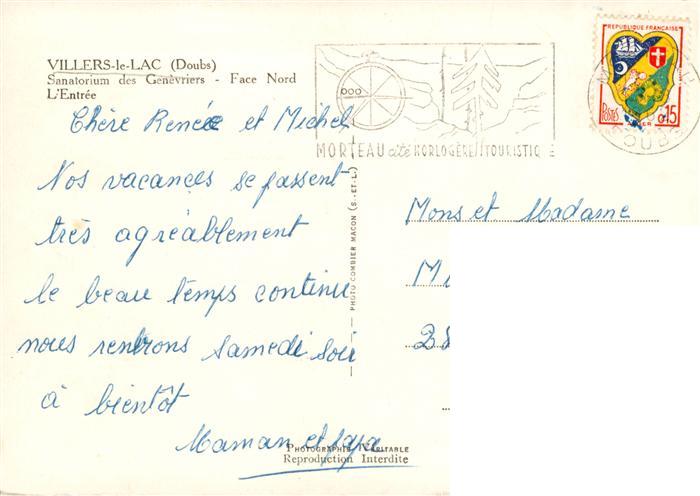 VILLERS-le-LAC (Doubs)
Sanatorium des Genêvriers - Face Nord
L'Entrée
Chère Renée et Michel
Nos vacances se passent
très agréablement
le beau temps continu
nous rentrons samedi soir
à bientôt
Maman et papa
MORTEAU cité HORLOGÈRE TOURISTIQUE
REPUBLIQUE FRANÇAISE
POSTES
ALGER
0,15
PHOTO COMBIER MACON (S.-ET-L.)
Mons et Madame
PHOTOGRAPHIE VÉRITABLE
Reproduction Interdite